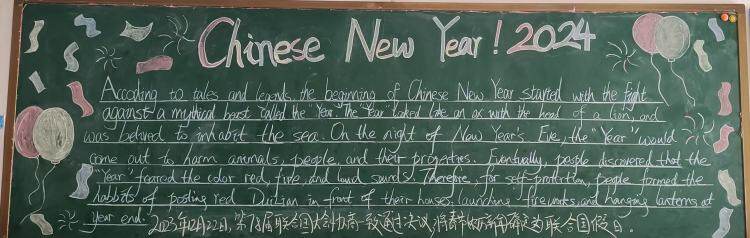 Chinese New Year! 2024
According to tales and legends, the beginning of Chinese New Year started with the fight
against a mythical beast called the "Year". The "Year" looked like an ox with the head of a lion, and
was believed to inhabit the sea. On the night of New Year's Eve, the "Year" would
come out to harm animals, people, and their properties. Eventually, people discovered that the
"Year" feared the color red, fire, and loud sounds. Therefore, for self-protection, people formed the
habbits of posting red DuiLian in front of their houses, launching fireworks, and hanging lanterns at
year end. 2023年12月22日,第78届联合国大会协商一致通过决议,将春节(农历新年)确定为联合国假日。